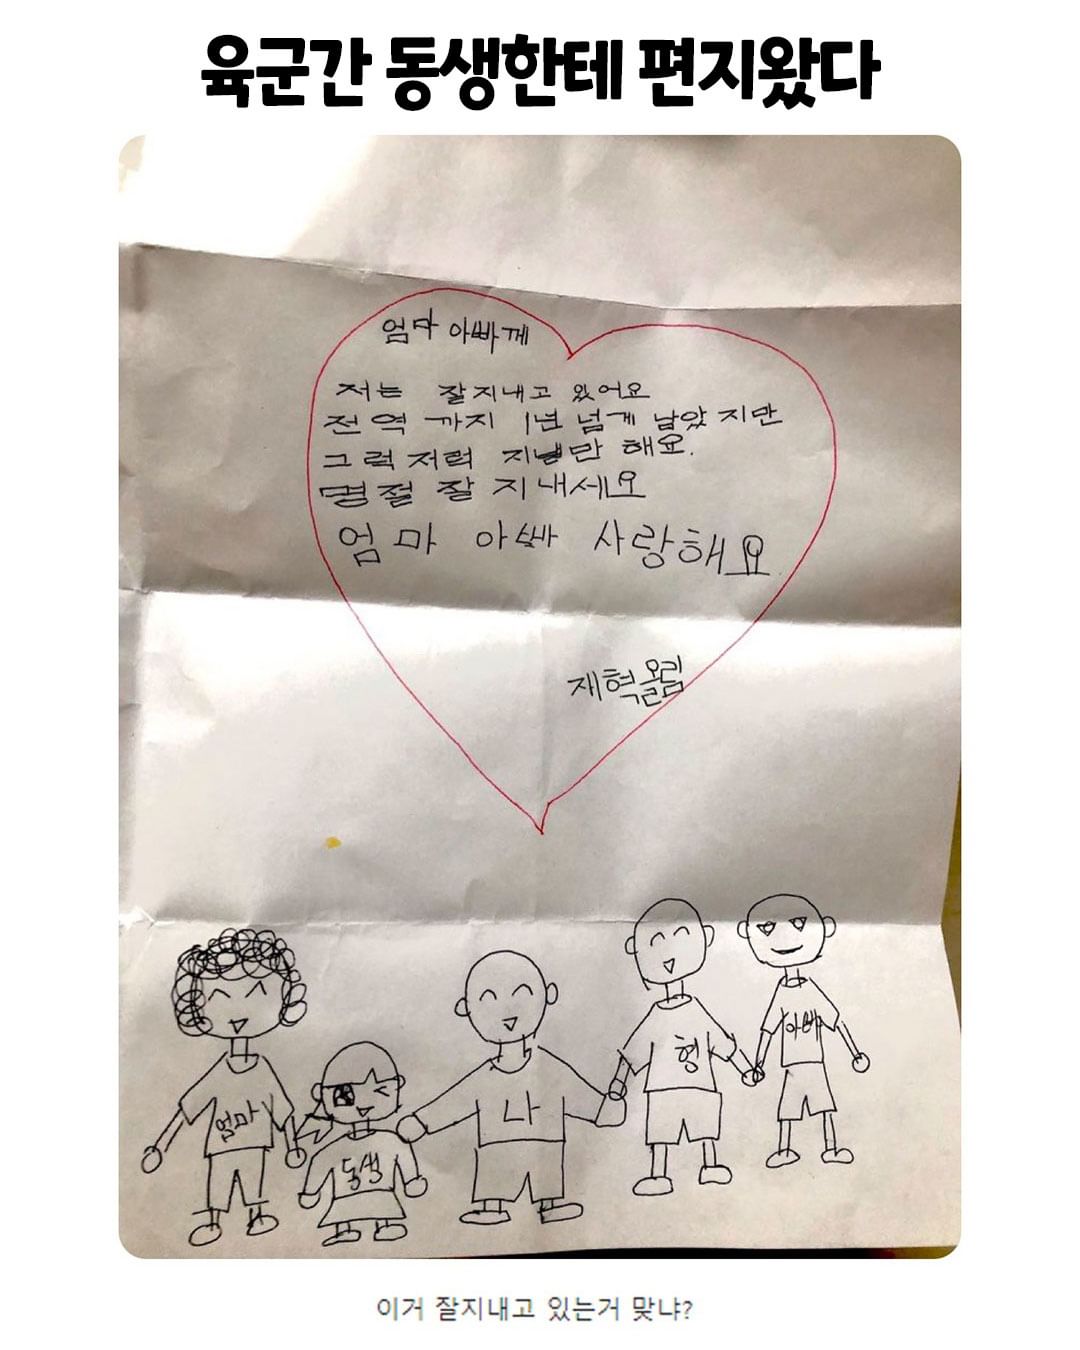 육군간 동생한테 편지왔다
엄마 아빠께
저는 잘지내고 있어요
전역 까지 1년 넘게 남았지만
그럭저럭 지낼만 해요.
명절 잘 지내세요
엄마 아빠 사랑해요
재혁올림
엄마
동생
나
형
아빠
이거 잘지내고 있는거 맞냐?